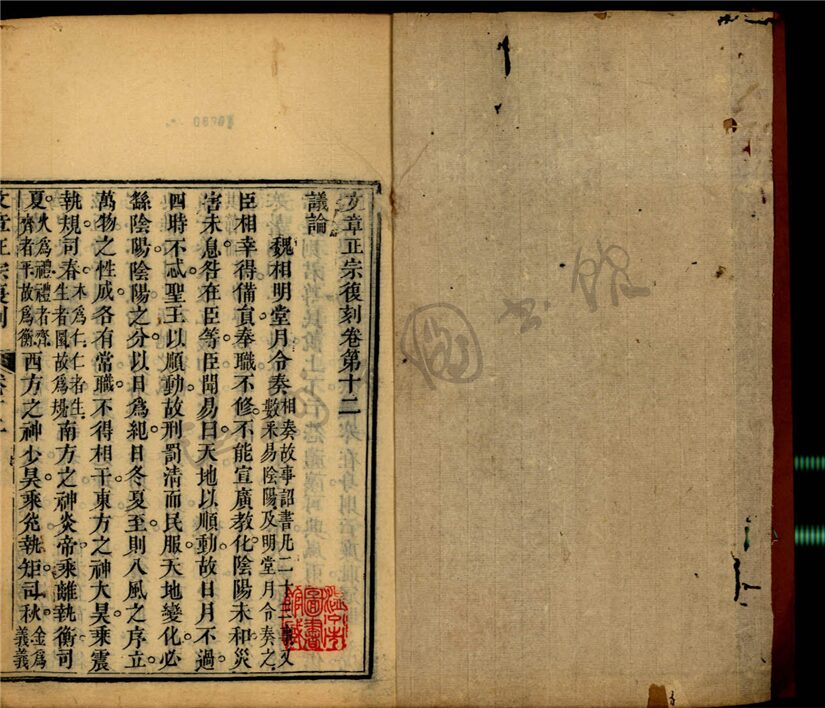 文章正宗復刻卷第十二
議論
魏相明堂月令奏
相奏故事詔書凡二十三事又
數釆易陰陽及明堂月令奏之
臣相幸得備員奉職不修不能宣廣教化陰陽未和災
害未息咎在臣等臣聞易曰天地以順動故日月不過
四時不忒聖王以順動故刑罰清而民服天地變化必
繇陰陽陰陽之分以日爲紀日冬夏至則八風之序立
萬物之性成各有常職不得相干東方之神大昊乘震
執規司春
木爲仁仁者生
生者圜故爲規
南方之神炎帝乘離執衡司
夏
火爲禮禮者齊
齊者平故爲衡
西方之神少昊乘兌執矩司秋
金爲
義義
文章正宗復刻
圖書
館藏